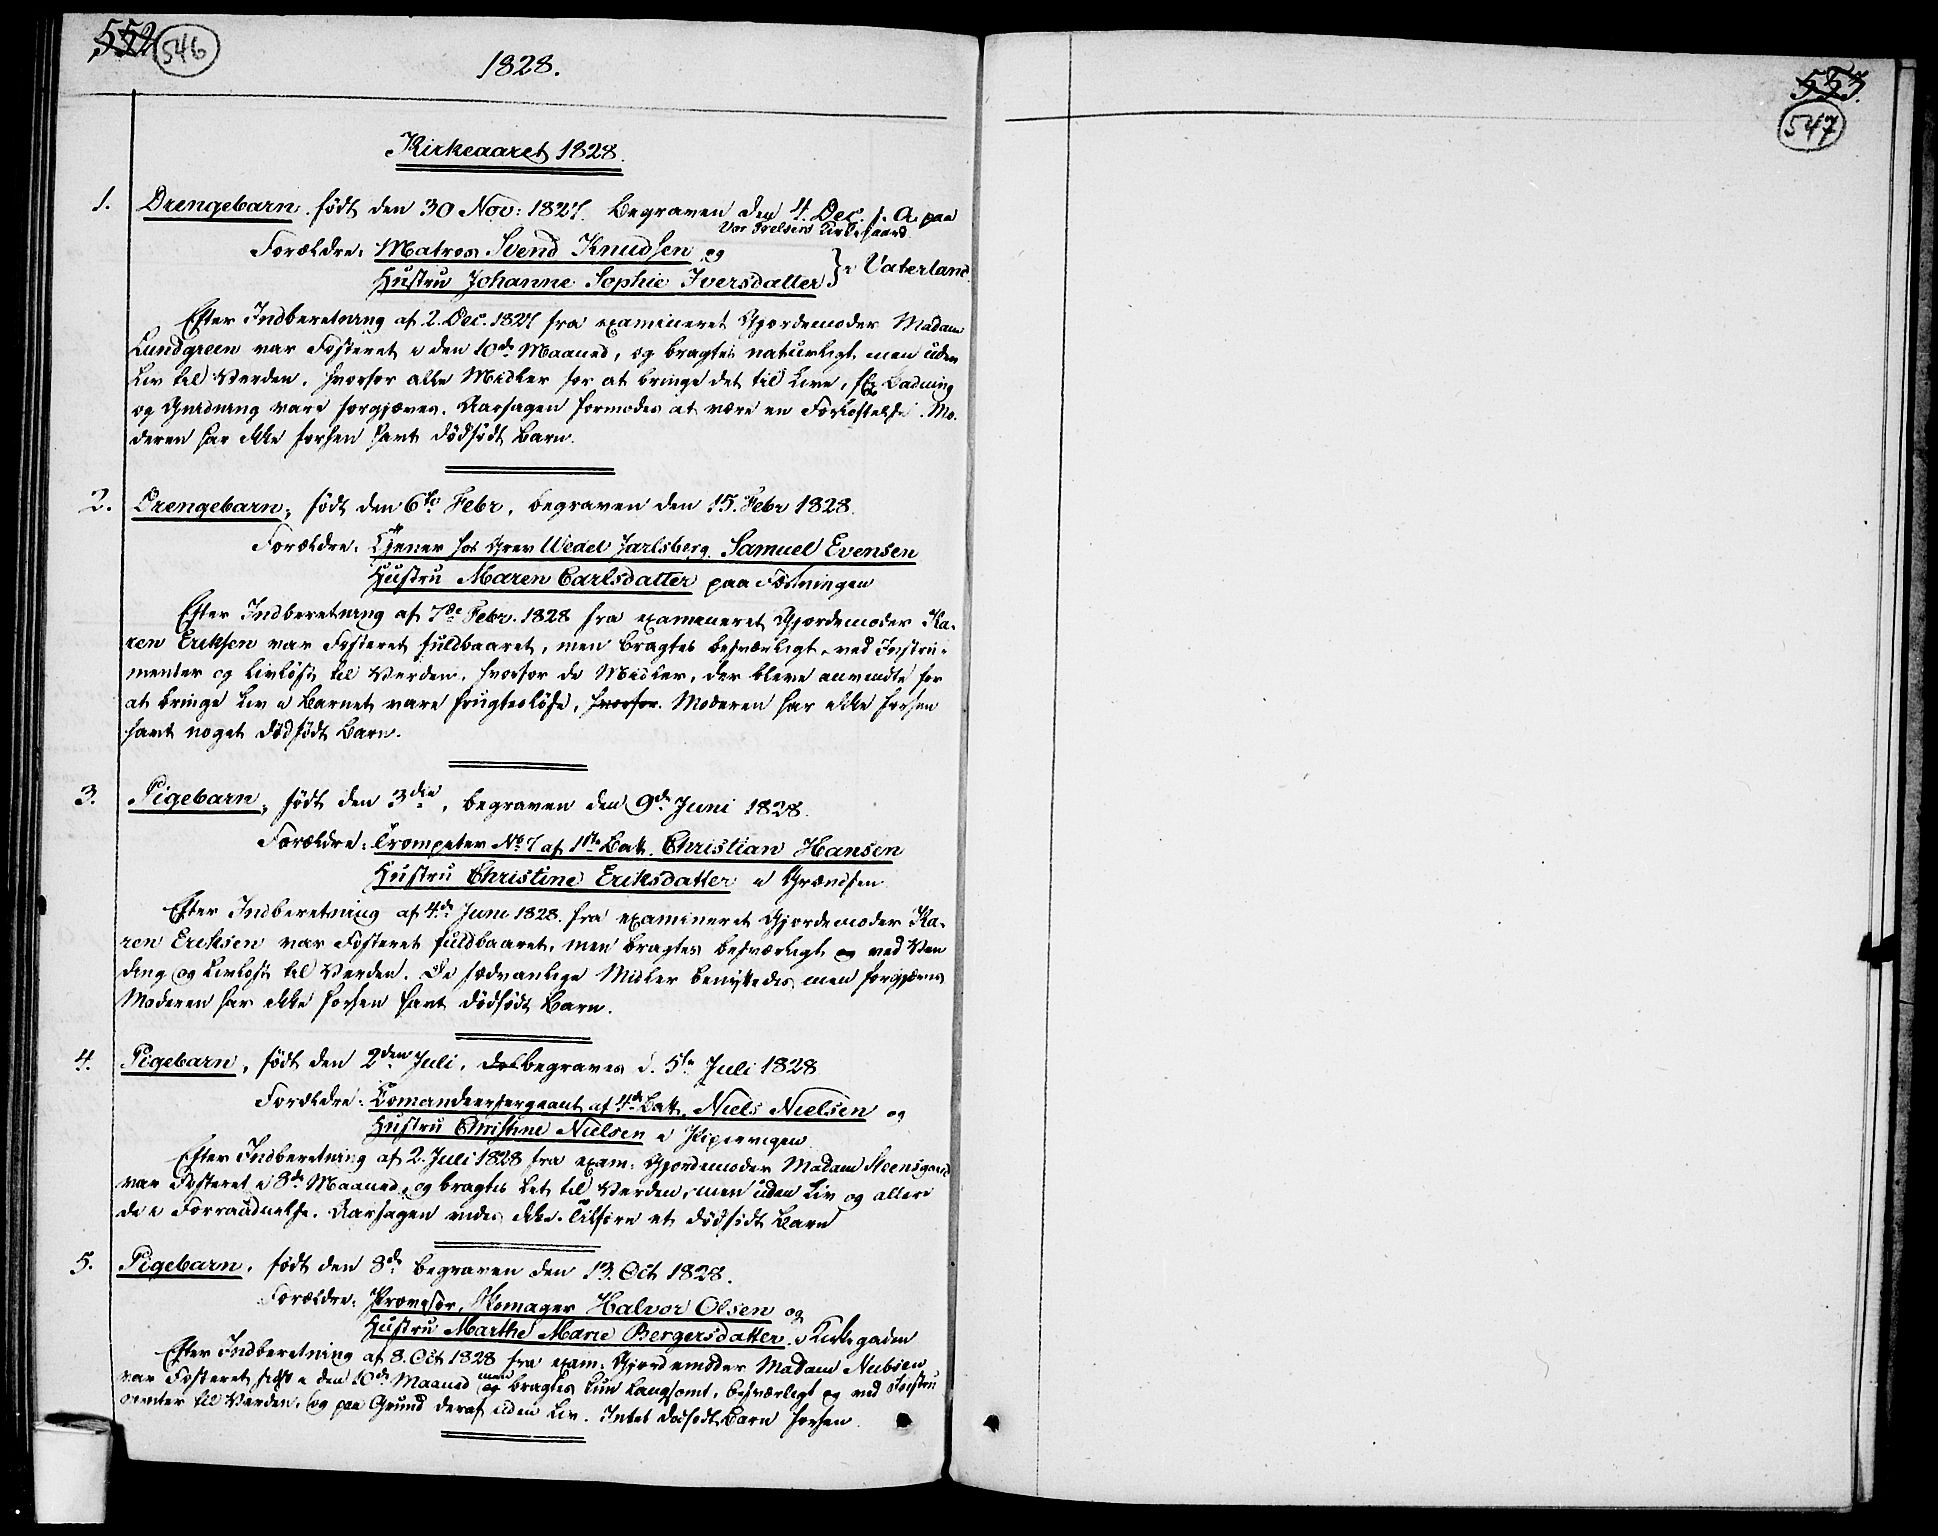 552 546
1828.
Kirkeaaret 1828.
1. Drengebarn, født den 30 Nov: 1827. begraven den 4. Dec. s. A. paa
Vor Frelsers Kirkegaard.
Forældre: Matros Svend Knudsen og
Hustru Johanne Sophie Iversdatter } i Vaterland.
Efter Indberetning af 2. Dec. 1827 fra examineret Gjordemoder Madam
Lundgreen var Fosteret i den 10de Maaned, og bragtes naturligt men uden
Liv til Verden, hvorfor alle Midler for at bringe det til Live, f Ex Badning
og Gnidning vare forgjæves. Aarsagen formodes at være en Forkjølelse. Mo-
deren har ikke forhen havt dødfødt Barn.
2. Drengebarn, født den 6te Febr, begraven den 15. Febr 1828.
Forældre: Tjener hos Grev Wedel Jarlsberg, Samuel Evensen
Hustru Maren Carlsdatter paa Fæstningen
Efter Indberetning af 7de Febr. 1828 fra examineret Gjordemoder Ka-
ren Eriksen var Fosteret fuldbaaret, men bragtes besværligt ved Instru-
menter og livløst til Verden, hvorfor de Midler, der bleve anvendte for
at bringe Liv i Barnet vare frugtesløse, hvorfor. Moderen har ikke forhen
havt noget dødfødt Barn.
3. Pigebarn, født den 3die, begraven den 9de Juni 1828.
Forældre: Trompeter No 7 af 1ste Batt. Christian Hansen
Hustru Christine Eriksdatter i Grændsen
Efter Indberetning af 4de Juni 1828 fra examineret Gjordemoder Ka-
ren Eriksen var Fosteret fuldbaaret, men bragtes besværligt og ved Ven
ding og livløst til Verden. De sædvanlige Midler benyttedes, men forgjæves
Moderen har ikke forhen havt dødfødt Barn.
4. Pigebarn, født den 2den Juli, begraves d. 5te Juli 1828
Forældre: Comandeersergeant af 4de Batt. Niels Nielsen og
Hustru Christine Nielsen i Pipervigen
Efter Indberetning af 2. Juli 1828 fra exam: Gjordemoder Madam Steensgaard
var Fosteret i 8de Maaned, og bragtes let til Verden, men uden Liv og aller
de i Forraadnelse. Aarsagen vides ikke. Tilforn et dødfødt Barn
5. Pigebarn, født den 8de begraven den 13. Oct 1828.
Forældre: Skomager Halvor Olsen og
Hustru Marthe Marie Bergersdatter i Kirkegaden
Efter Indberetning af 8. Oct 1828 fra exam: Gjordemoder Madam
var Fosteret i den 10de Maaned og men bragtes kun langsomt, besværligt og ved Instru
menter til Verden, og paa Grund deraf uden Liv. Intet dødfødt Barn forhen.
553.
547